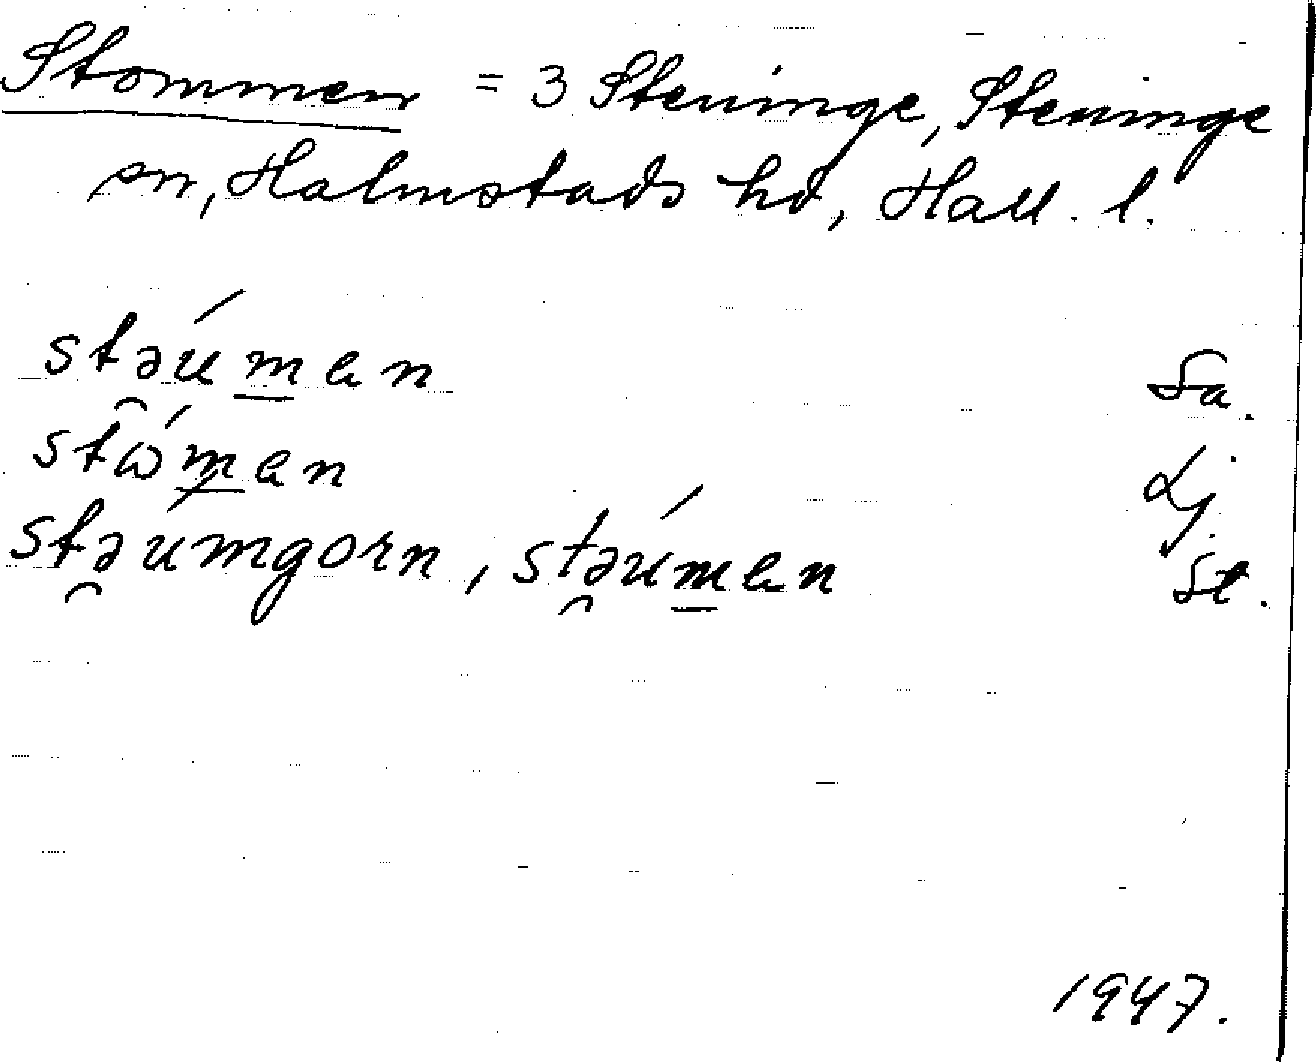 Stommen = 3 Steninge, Steninge
sn, Halmstads hd, Hall. l.
stə̯úm̲en Sa.
stω̂m̲en Lj.
stə̯úmgorn, stə̯úm̲en St.
1947.